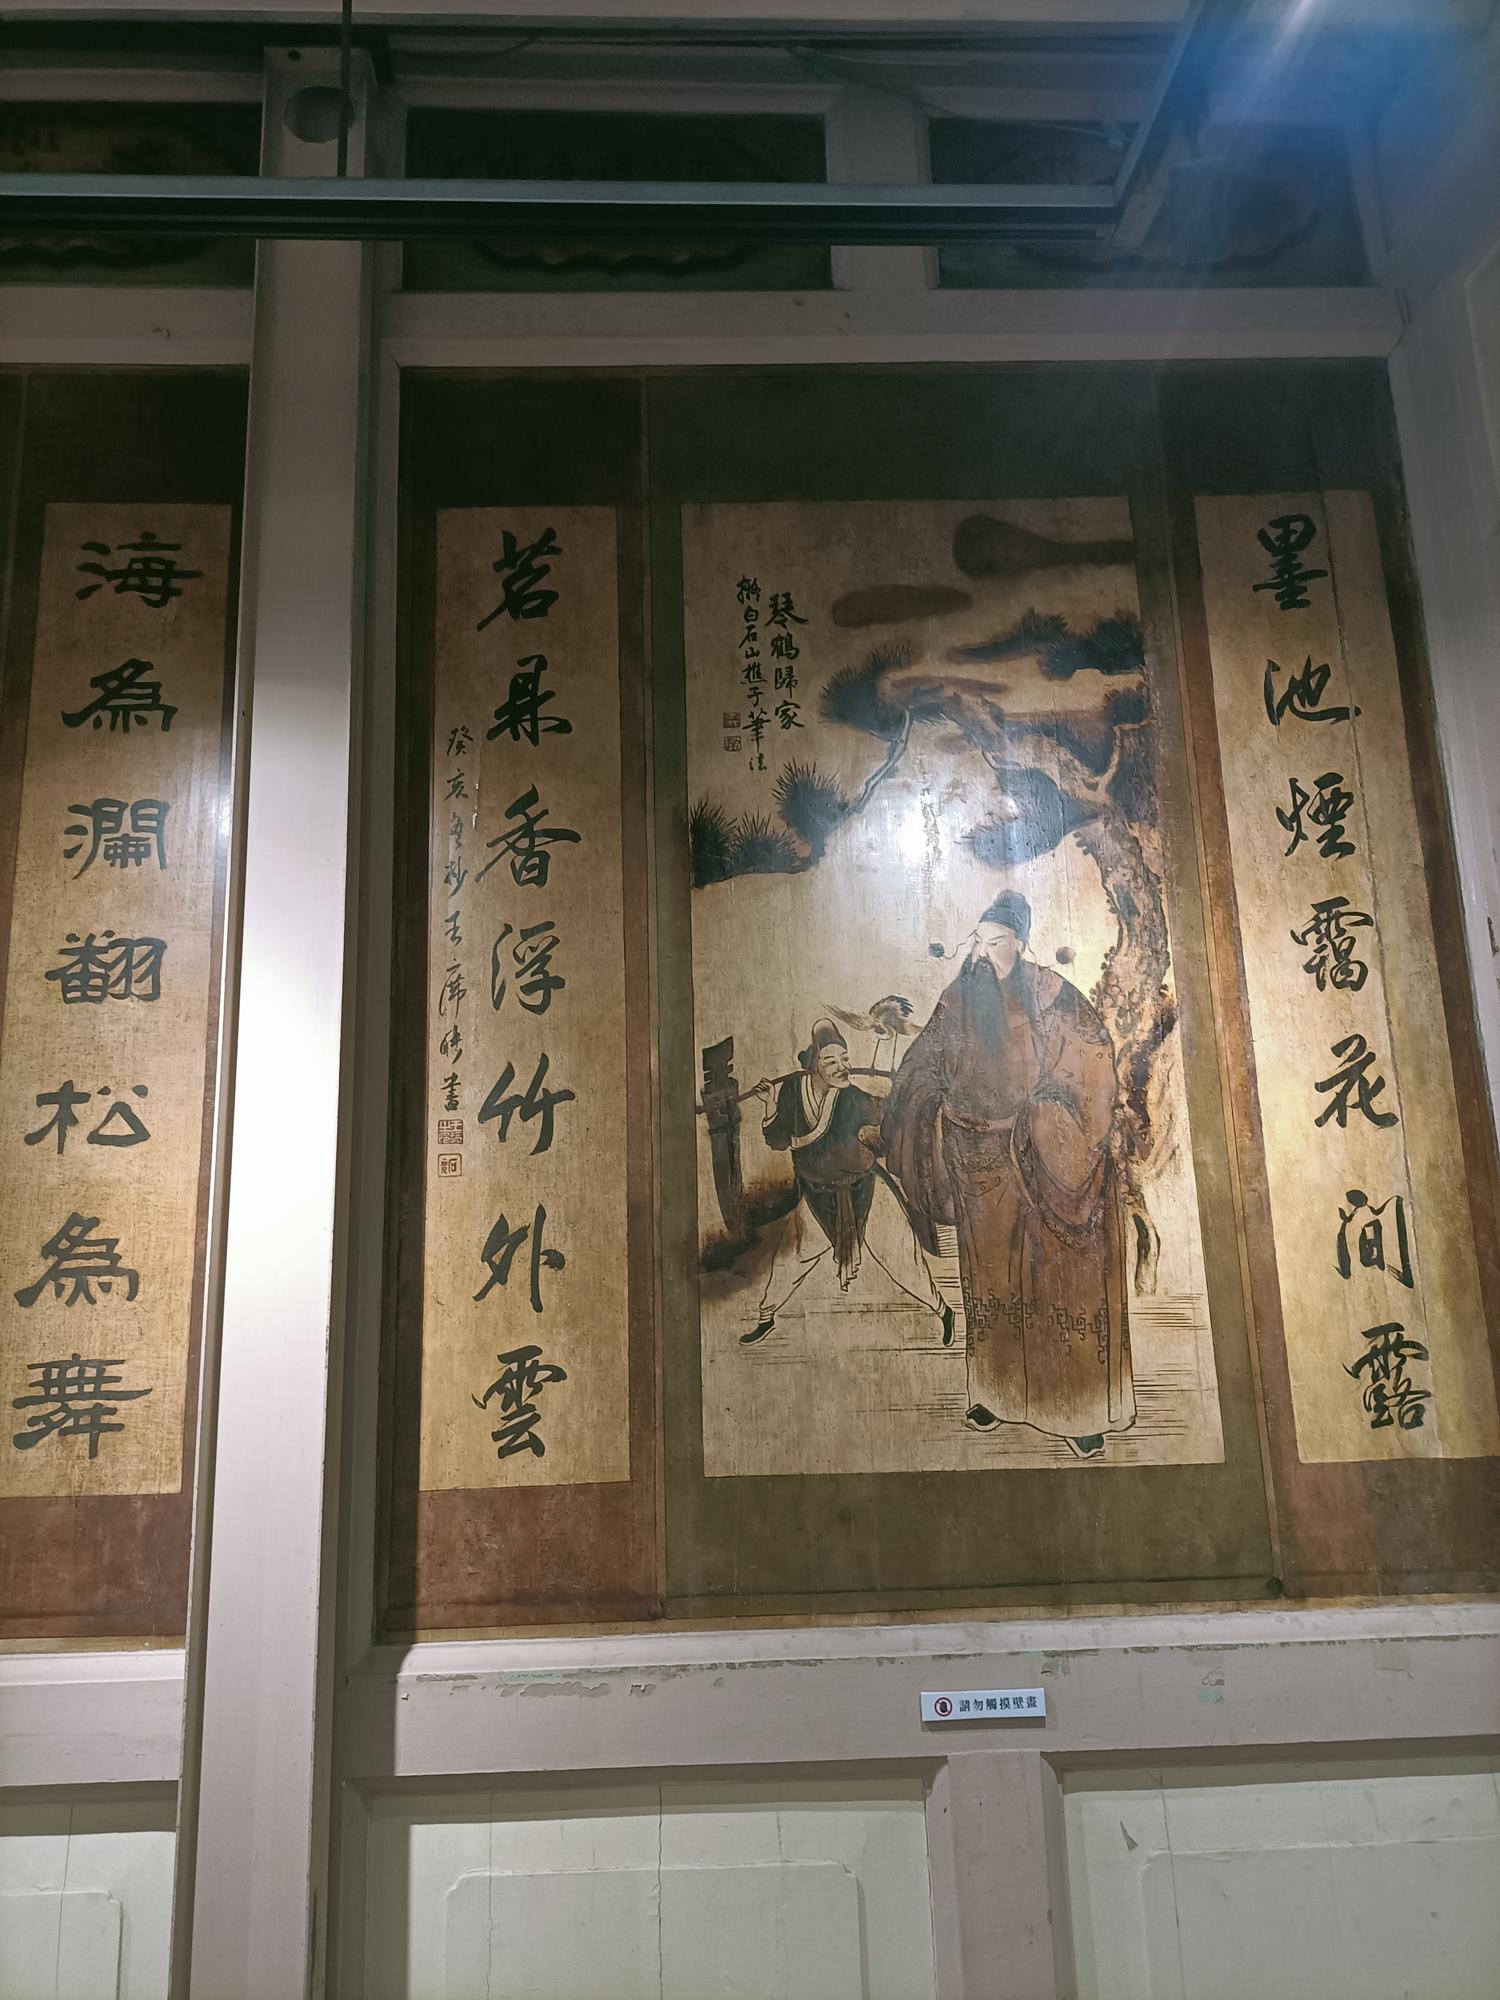 墨池煙靄花間露
琴鶴歸家
擬白石山樵子筆法
茗鼎香浮竹外雲
癸亥冬杪王席聘書
海為瀾翻松為舞
請勿觸摸壁畫